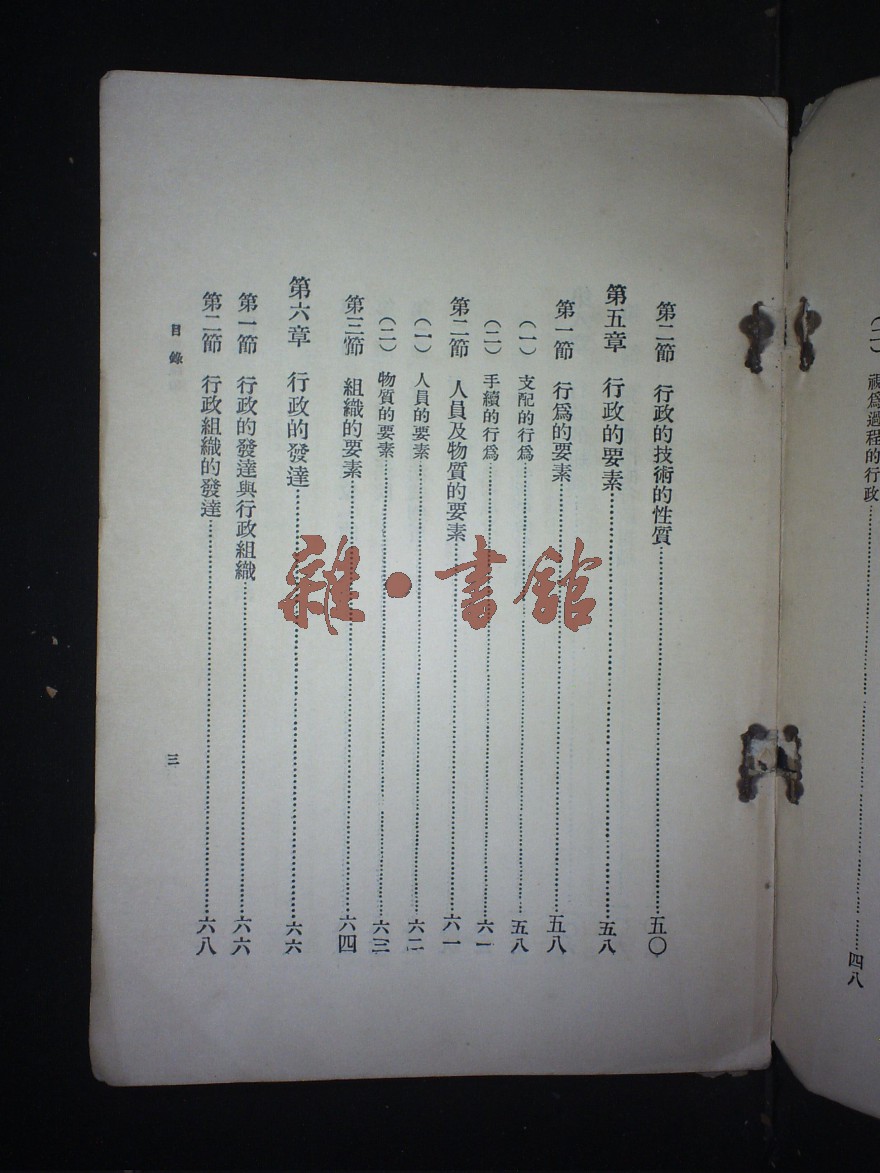 （二） 視爲過程的行政……四八
第二節 行政的技術的性質……五〇
第五章 行政的要素……五八
第一節 行爲的要素……五八
（一） 支配的行爲……五八
（二） 手續的行爲……六一
第二節 人員及物質的要素……六一
（一） 人員的要素……六二
（二） 物質的要素……六三
第三節 組織的要素……六四
第六章 行政的發達……六六
第一節 行政的發達與行政組織……六六
第二節 行政組織的發達……六八
目錄
三
雜·書館